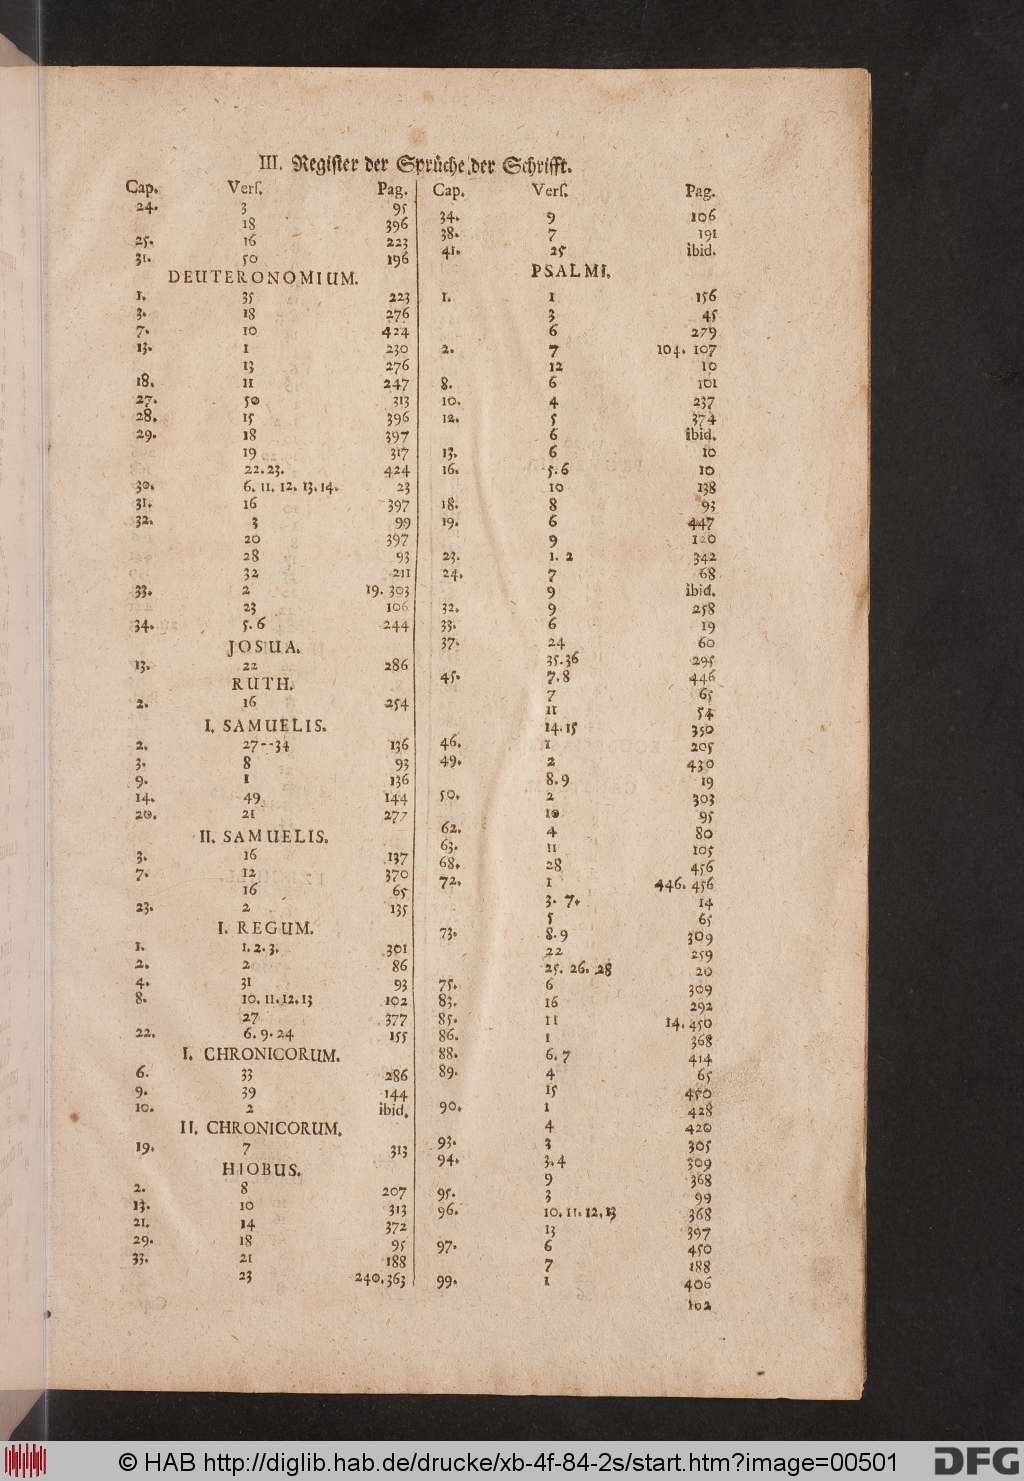 III. Register der Sprüche der Schrifft.
Cap. Verſ. Pag.
24. 3 95
18 396
25. 16 223
31. 50 196
DEUTERONOMIUM.
1. 35 223
3. 18 276
7. 10 424
13. 1 230
13 276
18. 11 247
27. 50 313
28. 15 396
29. 18 397
19 317
22. 23. 424
30. 6. 11. 12. 13. 14. 23
31. 16 397
32. 3 99
20 397
28 93
32 211
33. 2 19. 303
23 106
34. 5. 6 244
JOSUA.
13. 22 286
RUTH.
2. 16 254
I. SAMUELIS.
2. 27--34 136
3. 8 93
9. 1 136
14. 49 144
20. 21 277
II. SAMUELIS.
3. 16 137
7. 12 370
16 65
23. 2 135
I. REGUM.
1. 1. 2. 3. 301
2. 2 86
4. 31 93
8. 10. 11. 12. 13 102
27 377
22. 6. 9. 24 155
I. CHRONICORUM.
6. 33 286
9. 39 144
10. 2 ibid.
II. CHRONICORUM.
19. 7 313
HIOBUS.
2. 8 207
13. 10 313
21. 14 372
29. 18 95
33. 21 188
23 240. 363
Cap. Verſ. Pag.
34. 9 106
38. 7 191
41. 25 ibid.
PSALMI.
1. 1 156
3 45
6 279
2. 7 104. 107
12 10
8. 6 101
10. 4 237
12. 5 374
6 ibid.
13. 6 10
16. 5. 6 10
10 138
18. 8 93
19. 6 447
9 120
23. 1. 2 342
24. 7 68
9 ibid.
32. 9 258
33. 6 19
37. 24 60
35. 36 295
45. 7. 8 446
7 65
11 54
14. 15 350
46. 1 205
49. 2 430
8. 9 19
50. 2 303
10 95
62. 4 80
63. 11 105
68. 28 456
72. 1 446. 456
3. 7. 14
5 65
73. 8. 9 309
22 259
25. 26. 28 20
75. 6 309
83. 16 292
85. 11 14. 450
86. 1 368
88. 6. 7 414
89. 4 65
15 450
90. 1 428
4 420
93. 3 305
94. 3. 4 309
9 368
95. 3 99
96. 10. 11. 12. 13 368
13 397
97. 6 450
7 188
99. 1 406
102
© HAB http://diglib.hab.de/drucke/xb-4f-84-2s/start.htm?image=00501
DFG